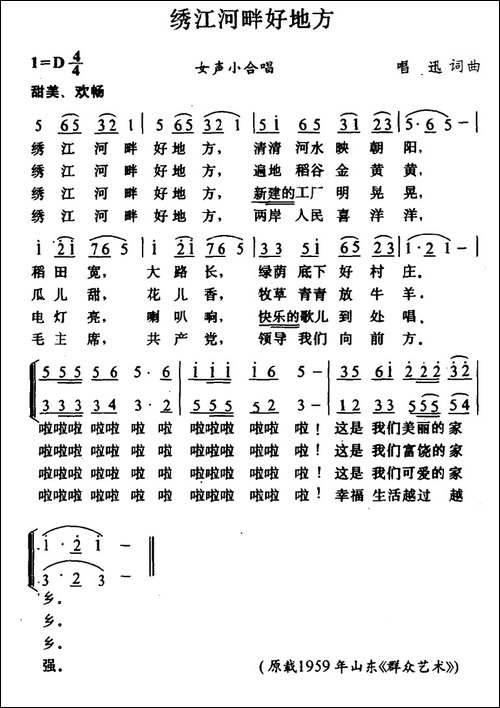 绣江河畔好地方
1=D 4/4
女声小合唱
唱 迅 词曲
甜美、欢畅
5 65 32 1 | 5· 65 32 1 | 5i 65 31 23 | 5· 6 5 - |
绣 江 河 畔 好 地 方， 清清 河水 映 朝 阳，
绣 江 河 畔 好 地 方， 遍地 稻谷 金 黄 黄，
绣 江 河 畔 好 地 方， 新建的工厂 明 晃 晃，
绣 江 河 畔 好 地 方， 两岸 人民 喜 洋 洋，
稻 田 宽， 大 路 长， 绿荫 底下 好 村 庄。
瓜 儿 甜， 花 儿 香， 牧草 青青 放 牛 羊。
电 灯 亮， 喇 叭 响， 快乐的歌儿 到 处 唱。
毛 主 席， 共 产 党， 领导 我们 向 前 方。
555 56 5· 6
333 34 3· 2
啦啦啦 啦啦 啦 啦 啦啦啦 啦啦 啦 啦！ 这是 我们美丽的 家
啦啦啦 啦啦 啦 啦 啦啦啦 啦啦 啦 啦！ 这是 我们富饶的 家
啦啦啦 啦啦 啦 啦 啦啦啦 啦啦 啦 啦！ 这是 我们可爱的 家
啦啦啦 啦啦 啦 啦 啦啦啦 啦啦 啦 啦！ 幸福 生活越过 越
i· 2 i - ‖
3· 2 3 - ‖
乡。
乡。
乡。
强。
(原载1959年山东《群众艺术》)